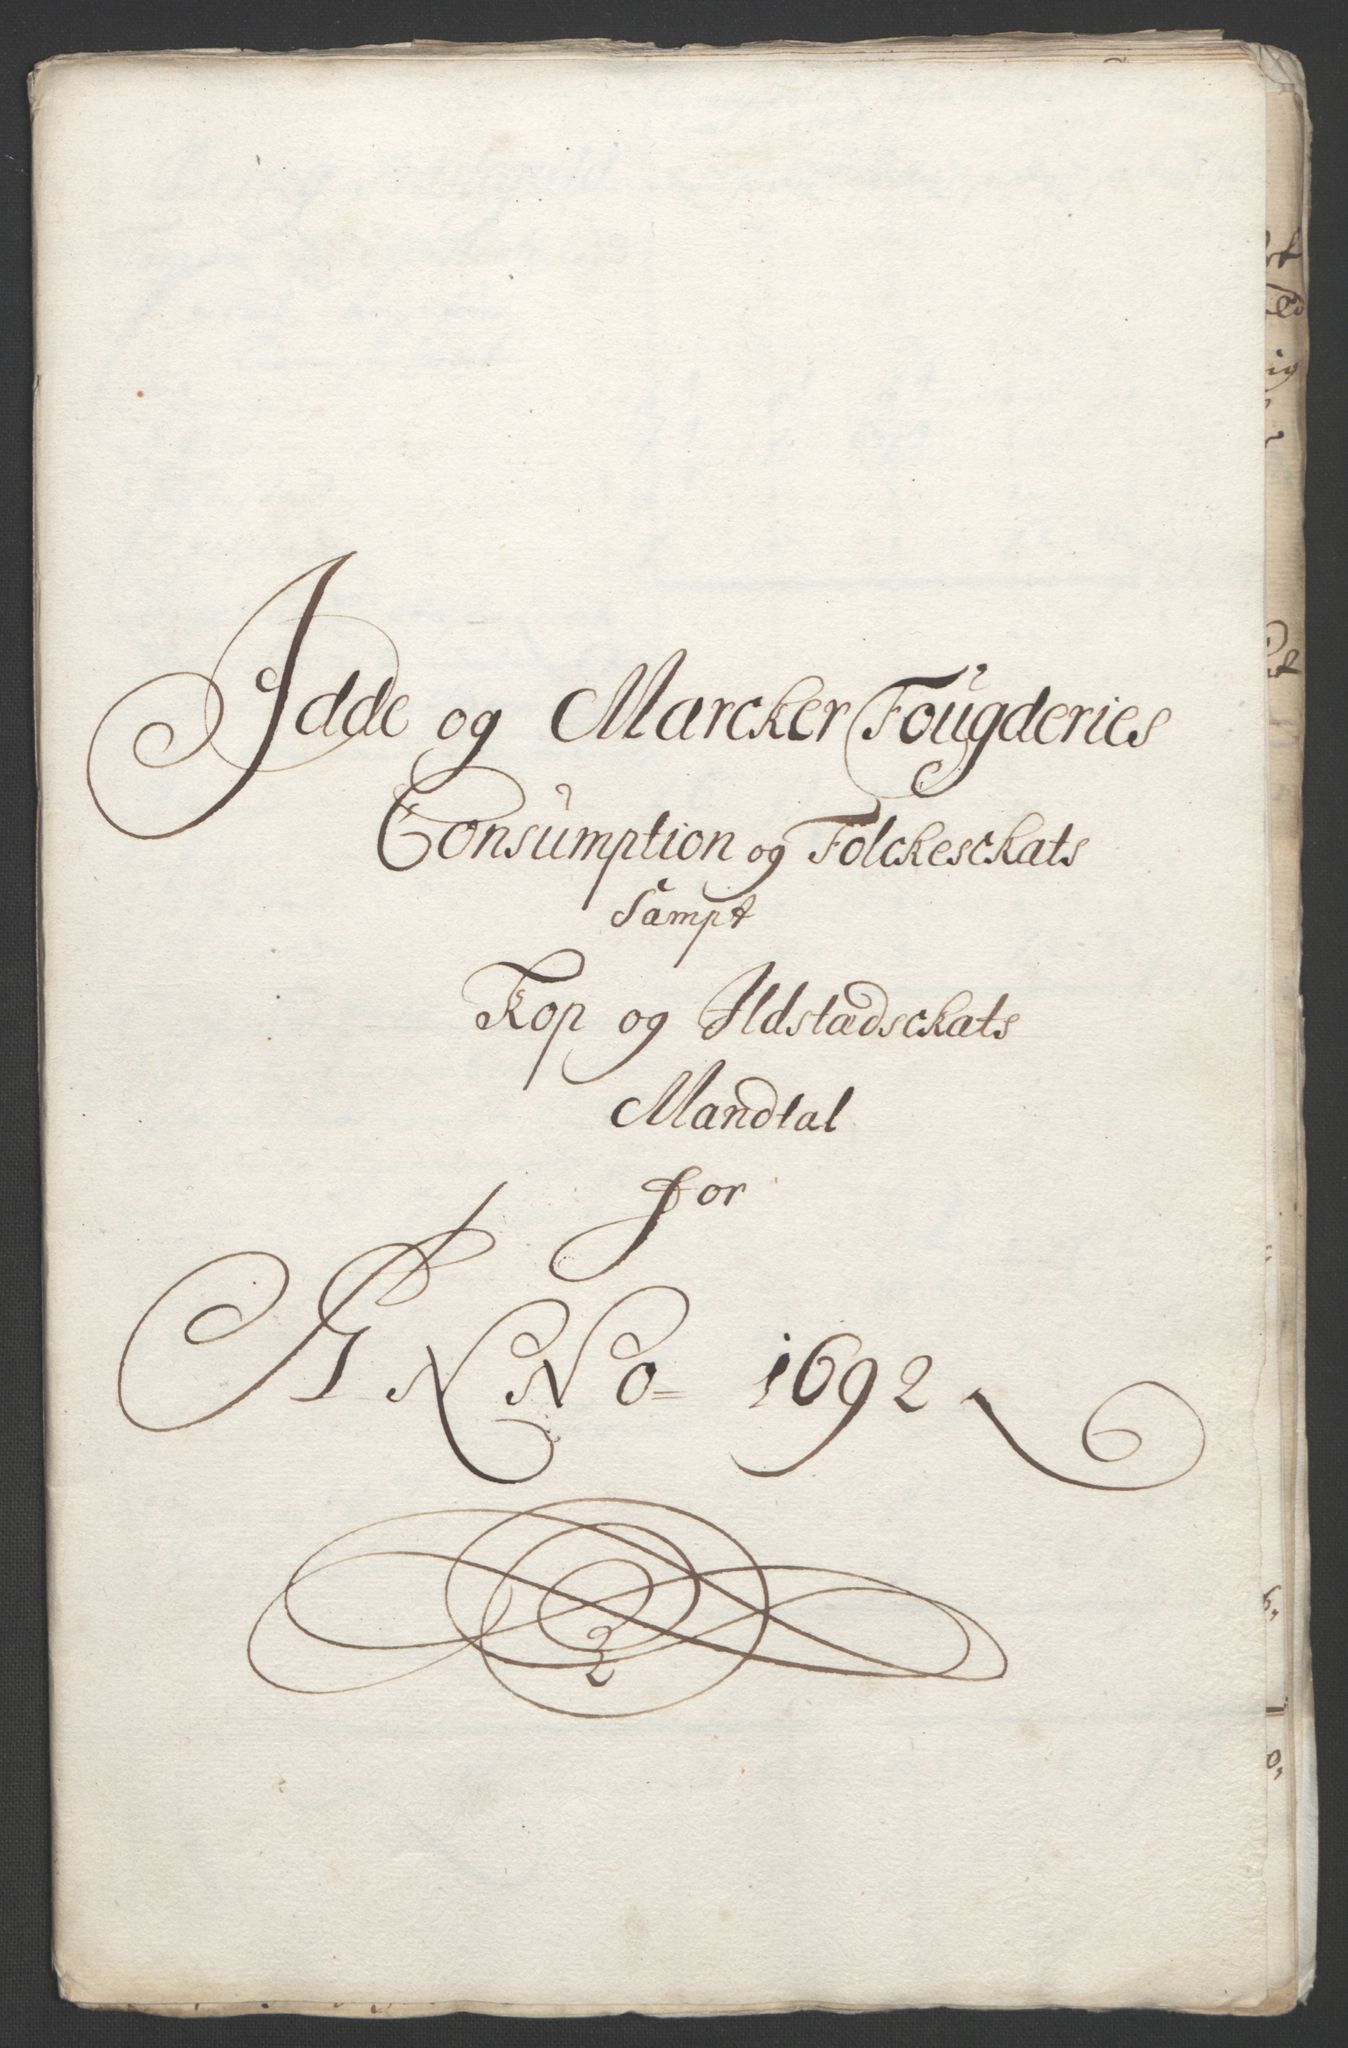 Idde og Marcker Fougderies
Consumption og Folckeschats
Sampt
Kop og Ildstædschats
Mandtal
for
ANNo= 1692
2